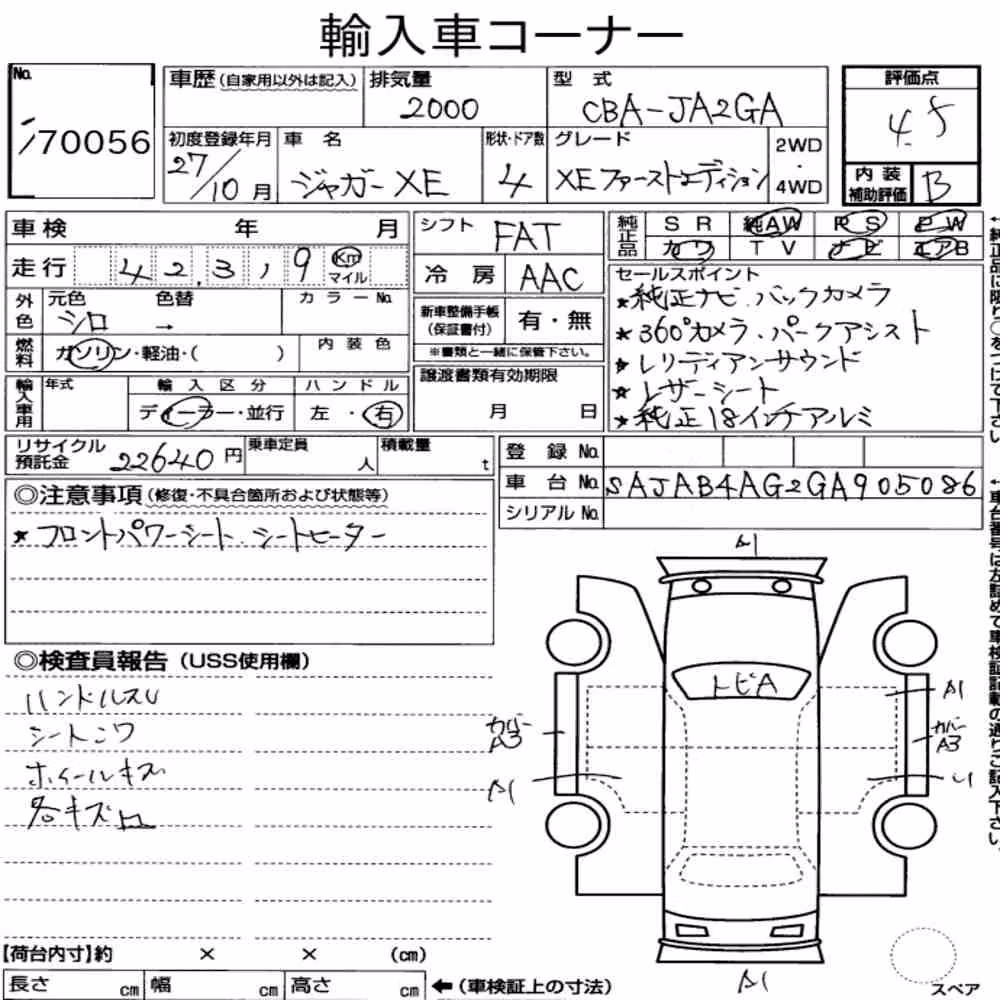 輸入車コーナー
No.
70056
車歴(自家用以外は記入)
排気量
2000
型 式
CBA-JA2GA
評価点
4.5
初度登録年月
27/10月
車 名
ジャガー XE
形状・ドア数
4
グレード
XE ファーストエディション
2WD
・
4WD
内 装
補助評価
B
車検 年 月
走行 42,319 Km
マイル
シフト
FAT
冷 房
AAC
純正品
S R 純AW P S P W
カワ T V ナビ エアB
外色
元色 色替 カラーNo.
シロ →
燃料
ガソリン・軽油・( )
内 装 色
新車整備手帳
(保証書付)
有・無
※書類と一緒に保管下さい。
セールスポイント
★純正ナビ.バックカメラ
★360°カメラ.パークアシスト
★レリディアンサウンド
★レザーシート
★純正18インチアルミ
輸入車用
年式
輸 入 区 分
ディーラー・並行
ハ ン ド ル
左 ・ 右
譲渡書類有効期限
月 日
リサイクル
預託金
22640 円
乗車定員
人
積載量
t
登 録 No.
車 台 No. SAJAB4AG2GA905086
シリアル No.
◎注意事項(修復・不具合箇所および状態等)
★フロントパワーシート.シートヒーター
◎検査員報告(USS使用欄)
ハンドルスレ
シートシワ
ホイールキズ
各キズ凹
A1
トビA
A1
カバー
A3
カバー
A3
A1
A1
【荷台内寸】約 × × (cm)
長さ cm 幅 cm 高さ cm
←(車検証上の寸法)
スペア
←純正品に限り○をつけて下さい。
←車台番号は左詰めで車検証記載の通りご記入下さい。